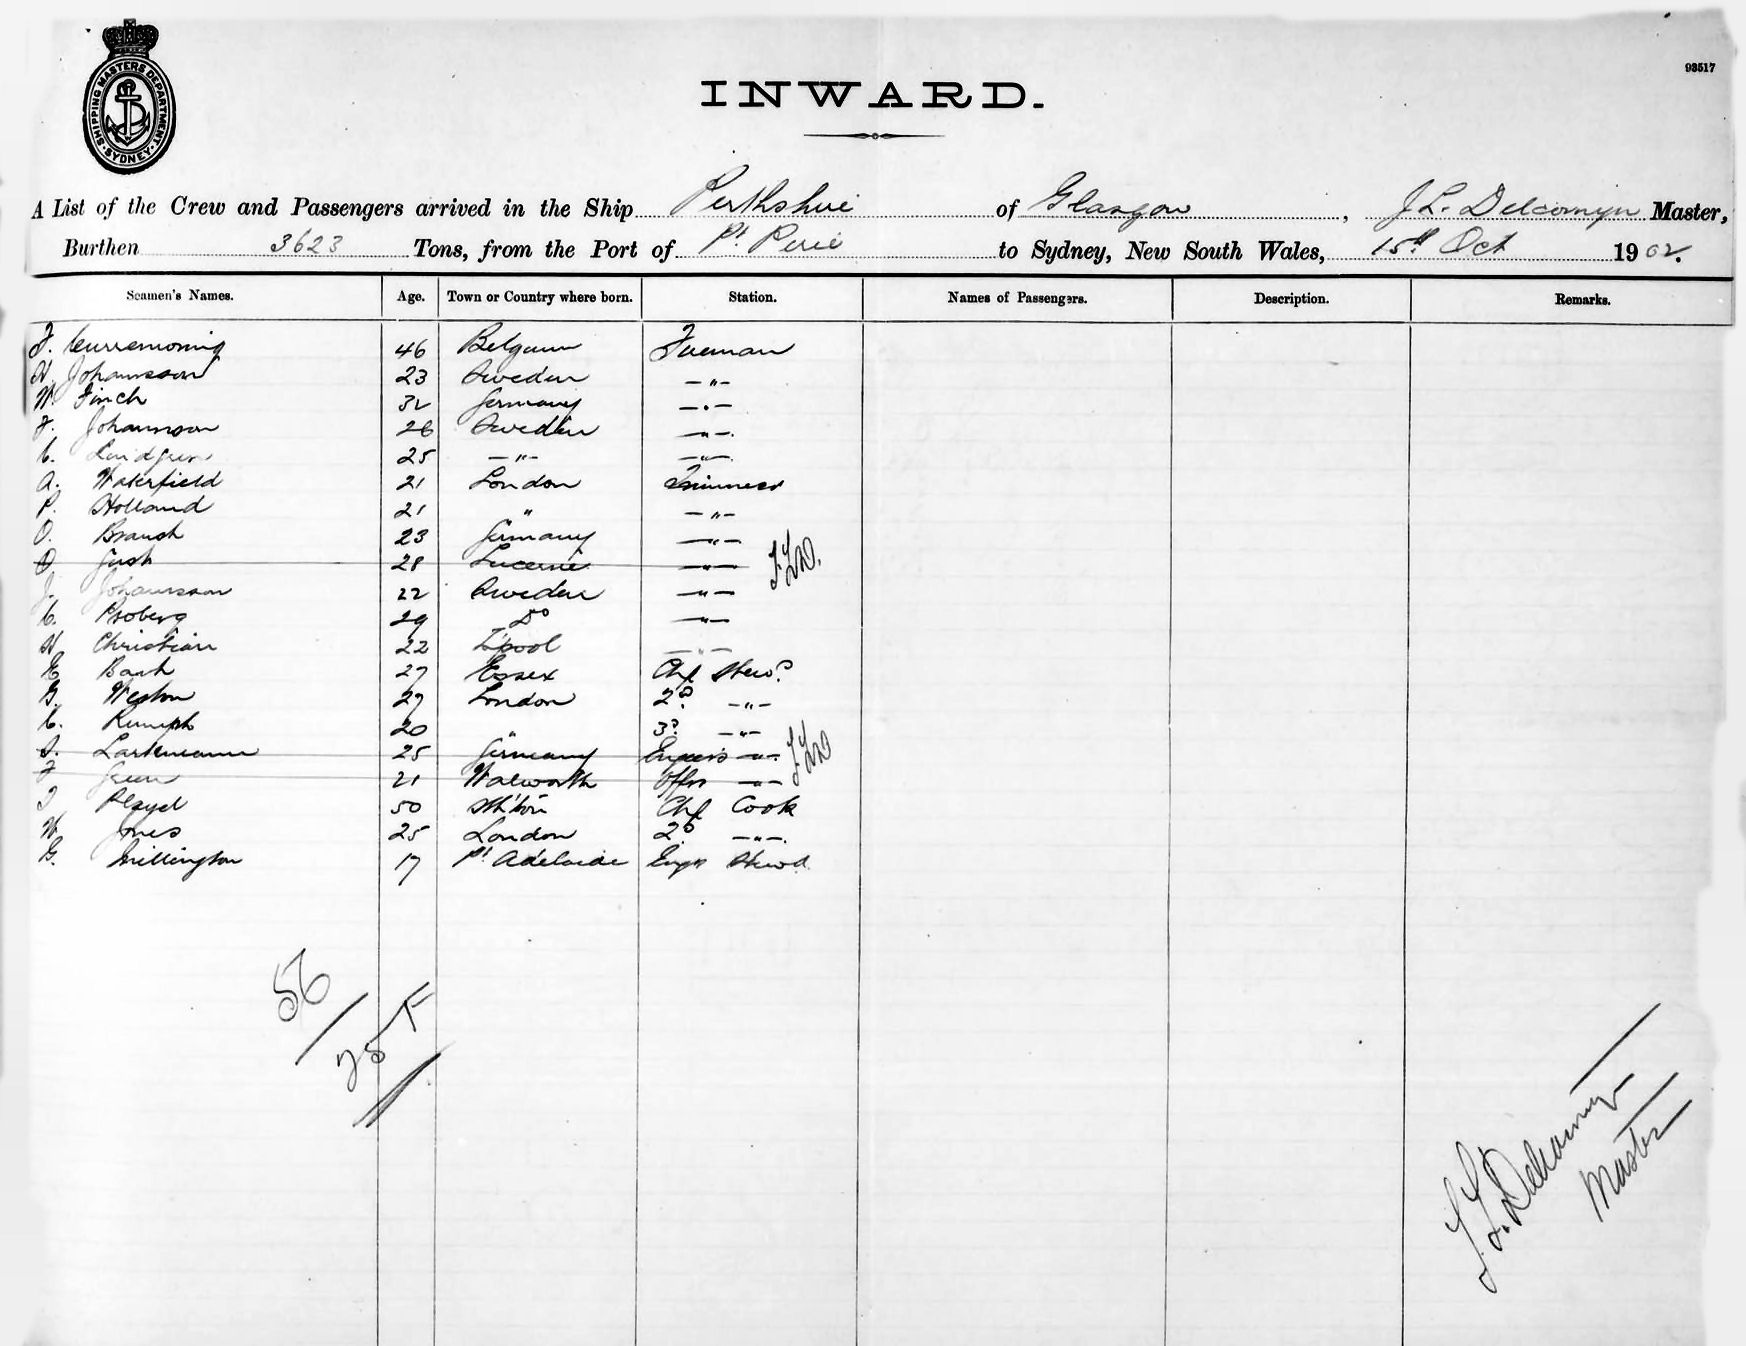 SHIPPING MASTERS DEPARTMENT
SYDNEY
93517
INWARD.
A List of the Crew and Passengers arrived in the Ship Perthshire of Glasgow, J L. Delcomyn Master,
Burthen 3623 Tons, from the Port of Pt Pirie to Sydney, New South Wales, 15th Oct 1902.
Seamen's Names. Age. Town or Country where born. Station. Names of Passengers. Description. Remarks.
F. 46 Belgium Fireman
H Johansson 23 Sweden —"—
W Finch 32 Germany —"—
F. Johannson 26 Sweden —"—
C. 25 —"— —"—
A. Wakefield 21 London Trimmer
P. Holland 21 " —"—
O. Brandt 23 Germany —"—
O. 28 Lucerne —"— J.L.D.
J. Johansson 22 Sweden —"—
C. Broberg 29 Do —"—
H Christian 22 L'pool —"—
E 27 Essex Chf Stewd
G. Weston 27 London 2d —"—
C. Rumph 20 " 3d —"—
Larkmann 25 Germany Engeers —"— J.L.D
F Green 21 Walworth Offrs —"—
J Playel 50 Sth'ton Chf Cook
W. Jones 25 London 2d —"—
G. Millington 17 Pt Adelaide Engr Stewd
56
25 F
J. L. Delcomyn
Master